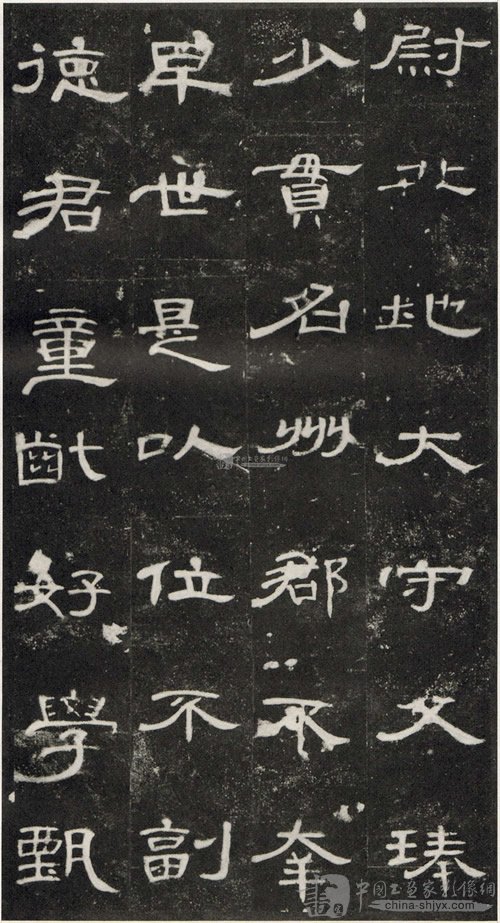 尉北地大守父琫
少貫名州郡不幸
早世是以位不副
徳君童齔好學甄
中国书画家影像網
china-shjyx.com